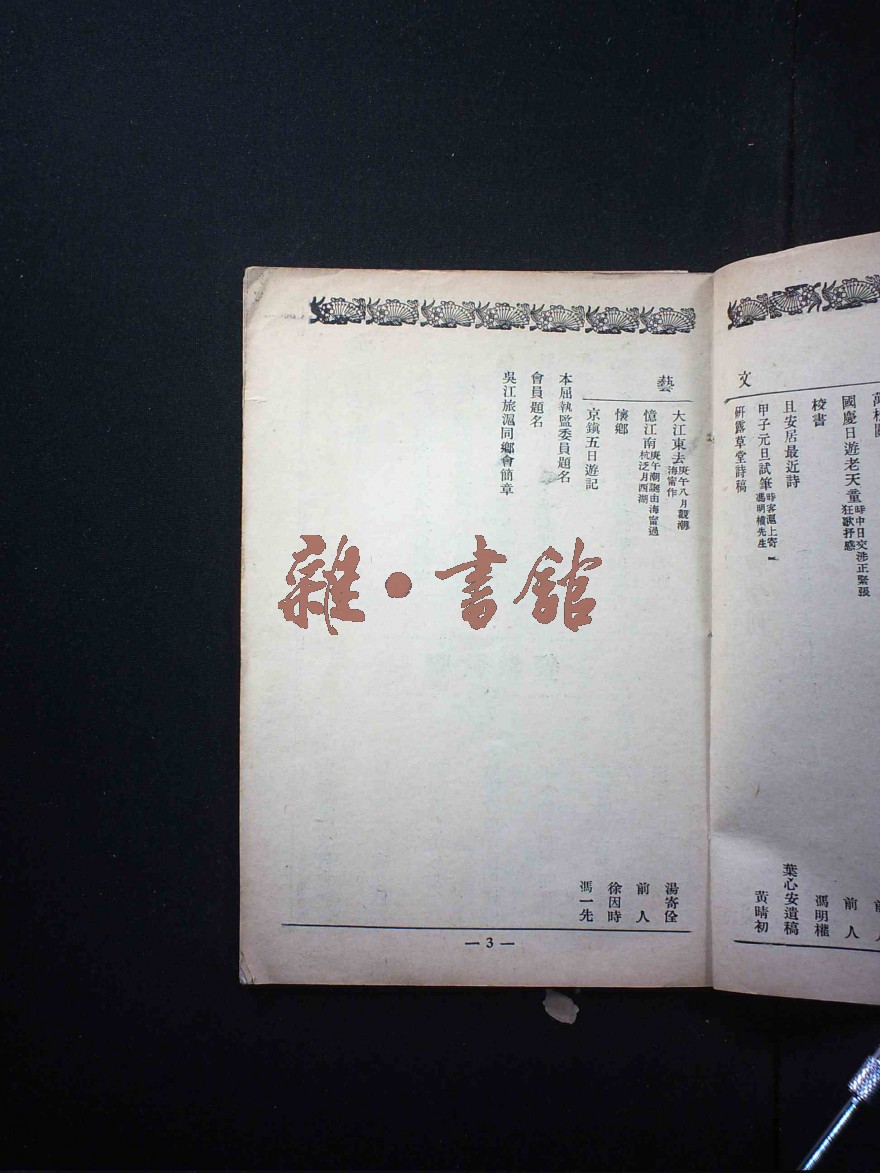 文
國慶日遊老天童時中日交涉正緊張狂歌抒感 前人
校書 馮明權
且安居最近詩 葉心安遺稿
甲子元旦試筆時客滬上寄馮明權先生
硏露草堂詩稿 黃晴初
藝
大江東去庚午八月觀潮海甯作 湯寄佺
憶江南庚午潮謝由海甯過杭泛月西湖 前人
懷鄉 徐因時
京鎭五日遊記 馮一先
本屆執監委員題名
會員題名
吳江旅滬同鄉會簡章
— 3 —
雜·書館